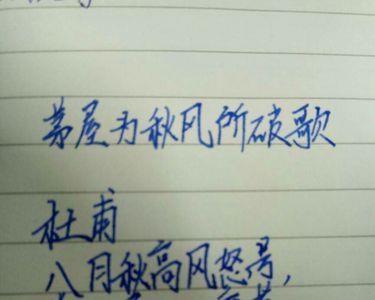 茅屋为秋风所破歌
杜甫
八月秋高风怒号，